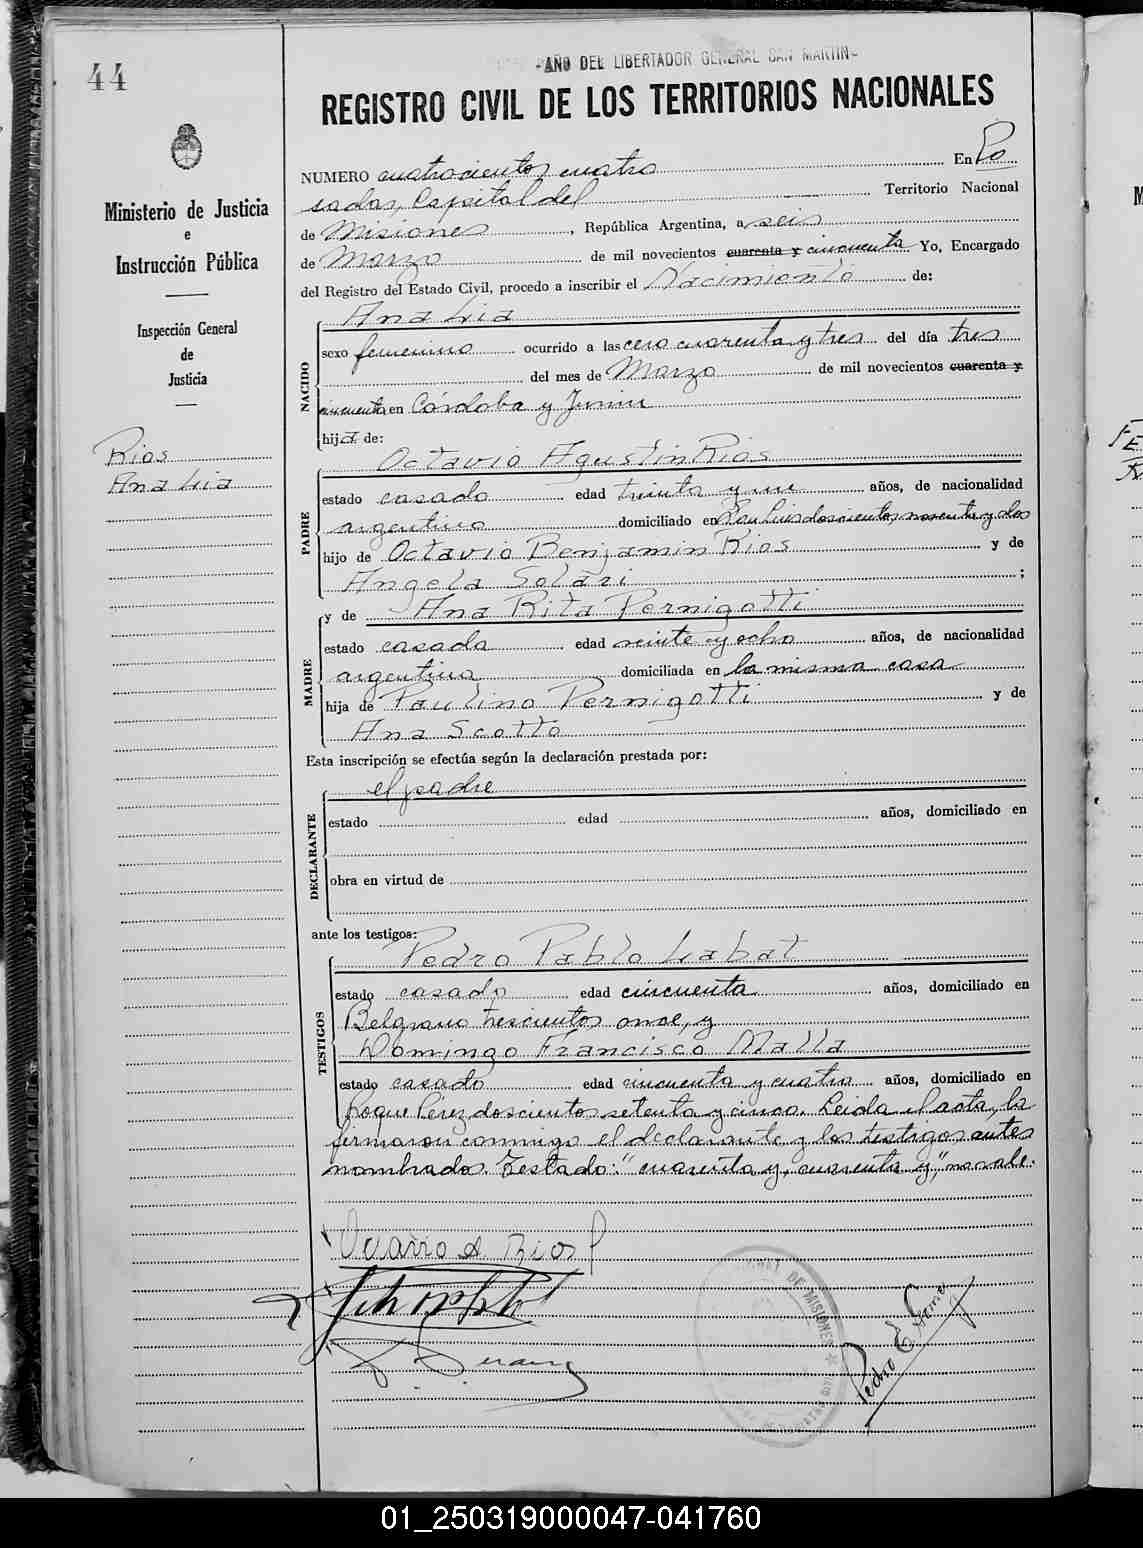 44
AÑO DEL LIBERTADOR GENERAL SAN MARTIN
REGISTRO CIVIL DE LOS TERRITORIOS NACIONALES
Ministerio de Justicia
e
Instrucción Pública
Inspección General
de
Justicia
Rios
Ana Lia
NUMERO cuatrocientos cuatro En Po
sadas, Capital del Territorio Nacional
de Misiones, República Argentina, a seis
de Marzo de mil novecientos cuarenta y cincuenta Yo, Encargado
del Registro del Estado Civil, procedo a inscribir el Nacimiento de:
NACIDO
Ana Lia
sexo femenino ocurrido a las cero cuarenta y tres del día tres
del mes de Marzo de mil novecientos cuarenta y
cincuenta en Córdoba y Junin
hija de:
PADRE
Octavio Agustin Rios
estado casado edad treinta y un años, de nacionalidad
argentino domiciliado en San Luis doscientos noventa y dos
hijo de Octavio Benjamin Rios y de
Angela Solari ;
MADRE
y de Ana Rita Pernigotti
estado casada edad veinte y ocho años, de nacionalidad
argentina domiciliada en la misma casa
hija de Paulino Pernigotti y de
Ana Scotto
Esta inscripción se efectúa según la declaración prestada por:
DECLARANTE
el padre
estado edad años, domiciliado en
obra en virtud de
ante los testigos:
TESTIGOS
Pedro Pablo Labat
estado casado edad cincuenta años, domiciliado en
Belgrano trescientos once, y
Domingo Francisco Malla
estado casado edad cincuenta y cuatro años, domiciliado en
Roque Pérez doscientos setenta y cinco. Leida el acta, la
firmaron conmigo el declarante y los testigos antes
nombrados. Testado: "cuarenta y, cuarenta y," no vale.
Octavio A. Rios
DE MISIONES
Pedro E.
01_250319000047-041760